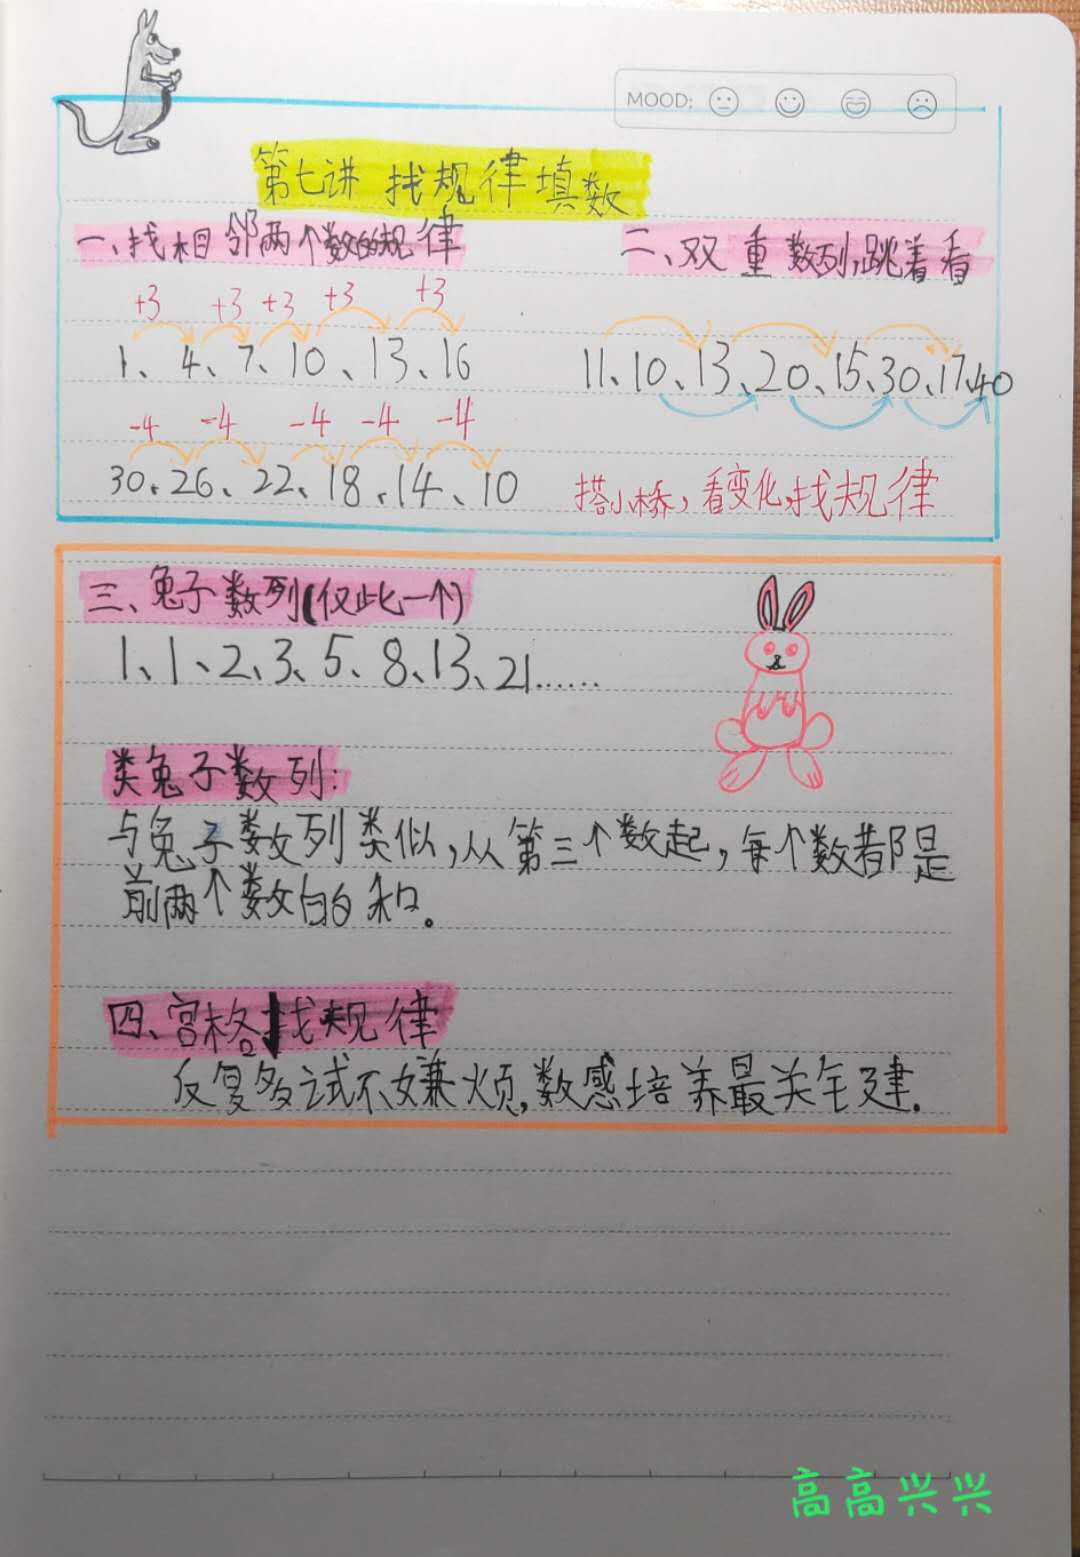 MOOD:
第七讲 找规律填数
一、找相邻两个数的规律
二、双重数列,跳着看
+3 +3 +3 +3 +3
1、4、7、10、13、16
11、10、13、20、15、30、17、40
-4 -4 -4 -4 -4
30、26、22、18、14、10
搭小桥，看变化,找规律
三、兔子数列(仅此一个)
1、1、2、3、5、8、13、21……
类兔子数列:
与兔子数列类似,从第三个数起,每个数都是
前两个数的和。
四、宫格找规律
反复多试不嫌烦,数感培养最关键.
高高兴兴